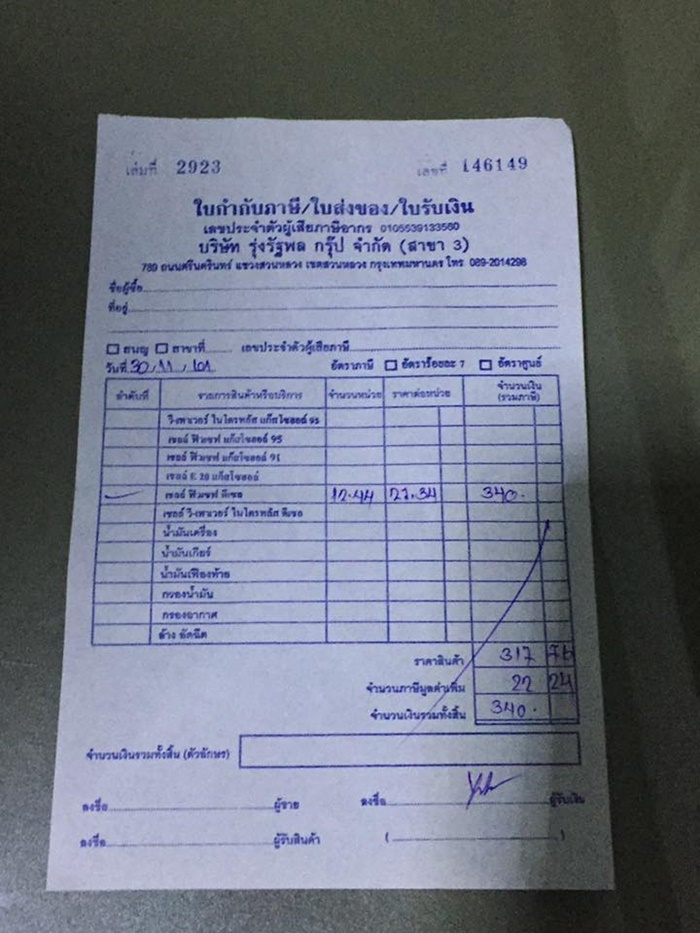 เล่มที่ 2923 เลขที่ 146149
ใบกำกับภาษี/ใบส่งของ/ใบรับเงิน
เลขประจำตัวผู้เสียภาษีอากร 0105539133560
บริษัท รุ่งรัฐพล กรุ๊ป จำกัด (สาขา 3)
789 ถนนศรีนครินทร์ แขวงสวนหลวง เขตสวนหลวง กรุงเทพมหานคร โทร. 089-2014298
ชื่อผู้ซื้อ
ที่อยู่
สนญ สาขาที่ เลขประจำตัวผู้เสียภาษี
วันที่ 30/11/61 อัตราภาษี อัตราร้อยละ 7 อัตราศูนย์
ลำดับที่ รายการสินค้าหรือบริการ จำนวนหน่วย ราคาต่อหน่วย จำนวนเงิน (รวมภาษี)
วี-เพาเวอร์ ไนโตรพลัส แก๊สโซฮอล์ 95
เชลล์ ฟิวเซฟ แก๊สโซฮอล์ 95
เชลล์ ฟิวเซฟ แก๊สโซฮอล์ 91
เชลล์ E 20 แก๊สโซฮอล์
เชลล์ ฟิวเซฟ ดีเซล 12.44 27.34 340.
เชลล์ วี-เพาเวอร์ ไนโตรพลัส ดีเซล
น้ำมันเครื่อง
น้ำมันเกียร์
น้ำมันเฟืองท้าย
กรองน้ำมัน
กรองอากาศ
ล้าง อัดฉีด
ราคาสินค้า 317 76
จำนวนภาษีมูลค่าเพิ่ม 22 24
จำนวนเงินรวมทั้งสิ้น 340.
จำนวนเงินรวมทั้งสิ้น (ตัวอักษร)
ลงชื่อ ผู้ขาย ลงชื่อ ผู้รับเงิน
ลงชื่อ ผู้รับสินค้า ( )